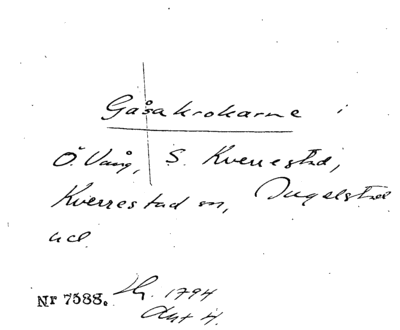 Gåsakrokarne i
Ö. Vång, S. Kverrestad,
Kverrestad sn, Ingelstad
hd.
Nr 7588. Lh. 1794
Akt 4.